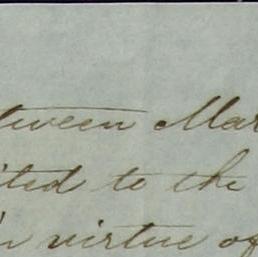 tween Mar
ited to the
in virtue of